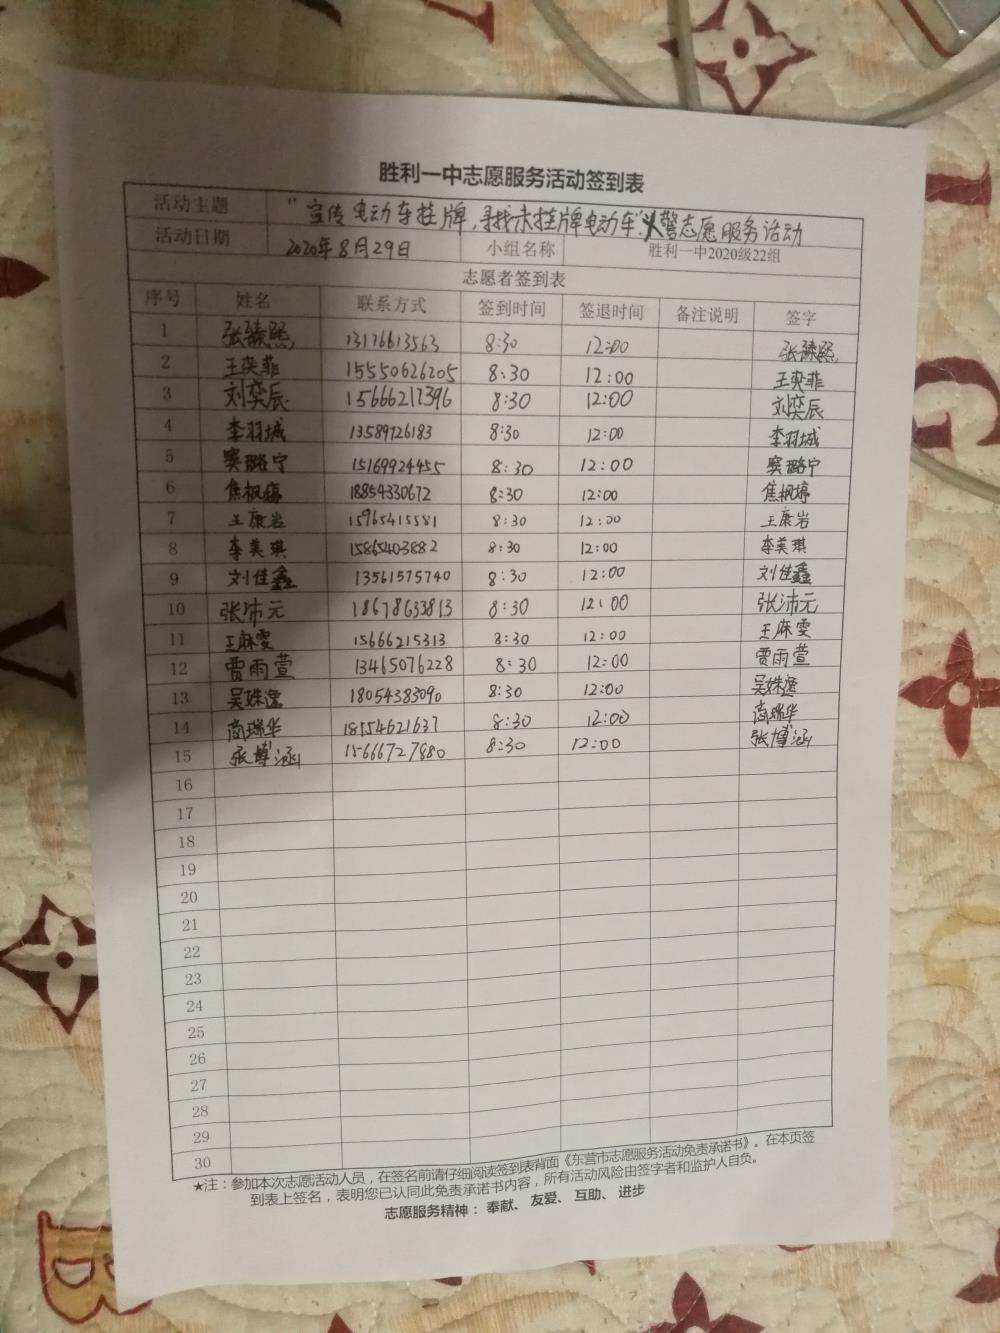 胜利一中志愿服务活动签到表
活动主题 "宣传电动车挂牌,寻找未挂牌电动车"警志愿服务活动
活动日期 2020年8月29日 小组名称 胜利一中2020级22组
志愿者签到表
序号 姓名 联系方式 签到时间 签退时间 备注说明 签字
1 张臻熙 13176613563 8:30 12:00 张臻熙
2 王奕菲 15550626205 8:30 12:00 王奕菲
3 刘奕辰 15666217396 8:30 12:00 刘奕辰
4 李羽城 13589726183 8:30 12:00 李羽城
5 窦璐宁 15169924455 8:30 12:00 窦璐宁
6 焦枫婷 18854330672 8:30 12:00 焦枫婷
7 王康岩 15965415581 8:30 12:00 王康岩
8 李美琪 15865403882 8:30 12:00 李美琪
9 刘佳鑫 13561575740 8:30 12:00 刘佳鑫
10 张沛元 18678633813 8:30 12:00 张沛元
11 王麻雯 15666215313 8:30 12:00 王麻雯
12 贾雨萱 13465076228 8:30 12:00 贾雨萱
13 吴姝逸 18054383090 8:30 12:00 吴姝逸
14 商瑞华 18154621637 8:30 12:00 商瑞华
15 张博涵 15666727880 8:30 12:00 张博涵
16
17
18
19
20
21
22
23
24
25
26
27
28
29
30
★注:参加本次志愿活动人员,在签名前请仔细阅读签到表背面《东营市志愿服务活动免责承诺书》。在本页签
到表上签名,表明您已认同此免责承诺书内容,所有活动风险由签字者和监护人自负。
志愿服务精神:奉献、友爱、互助、进步